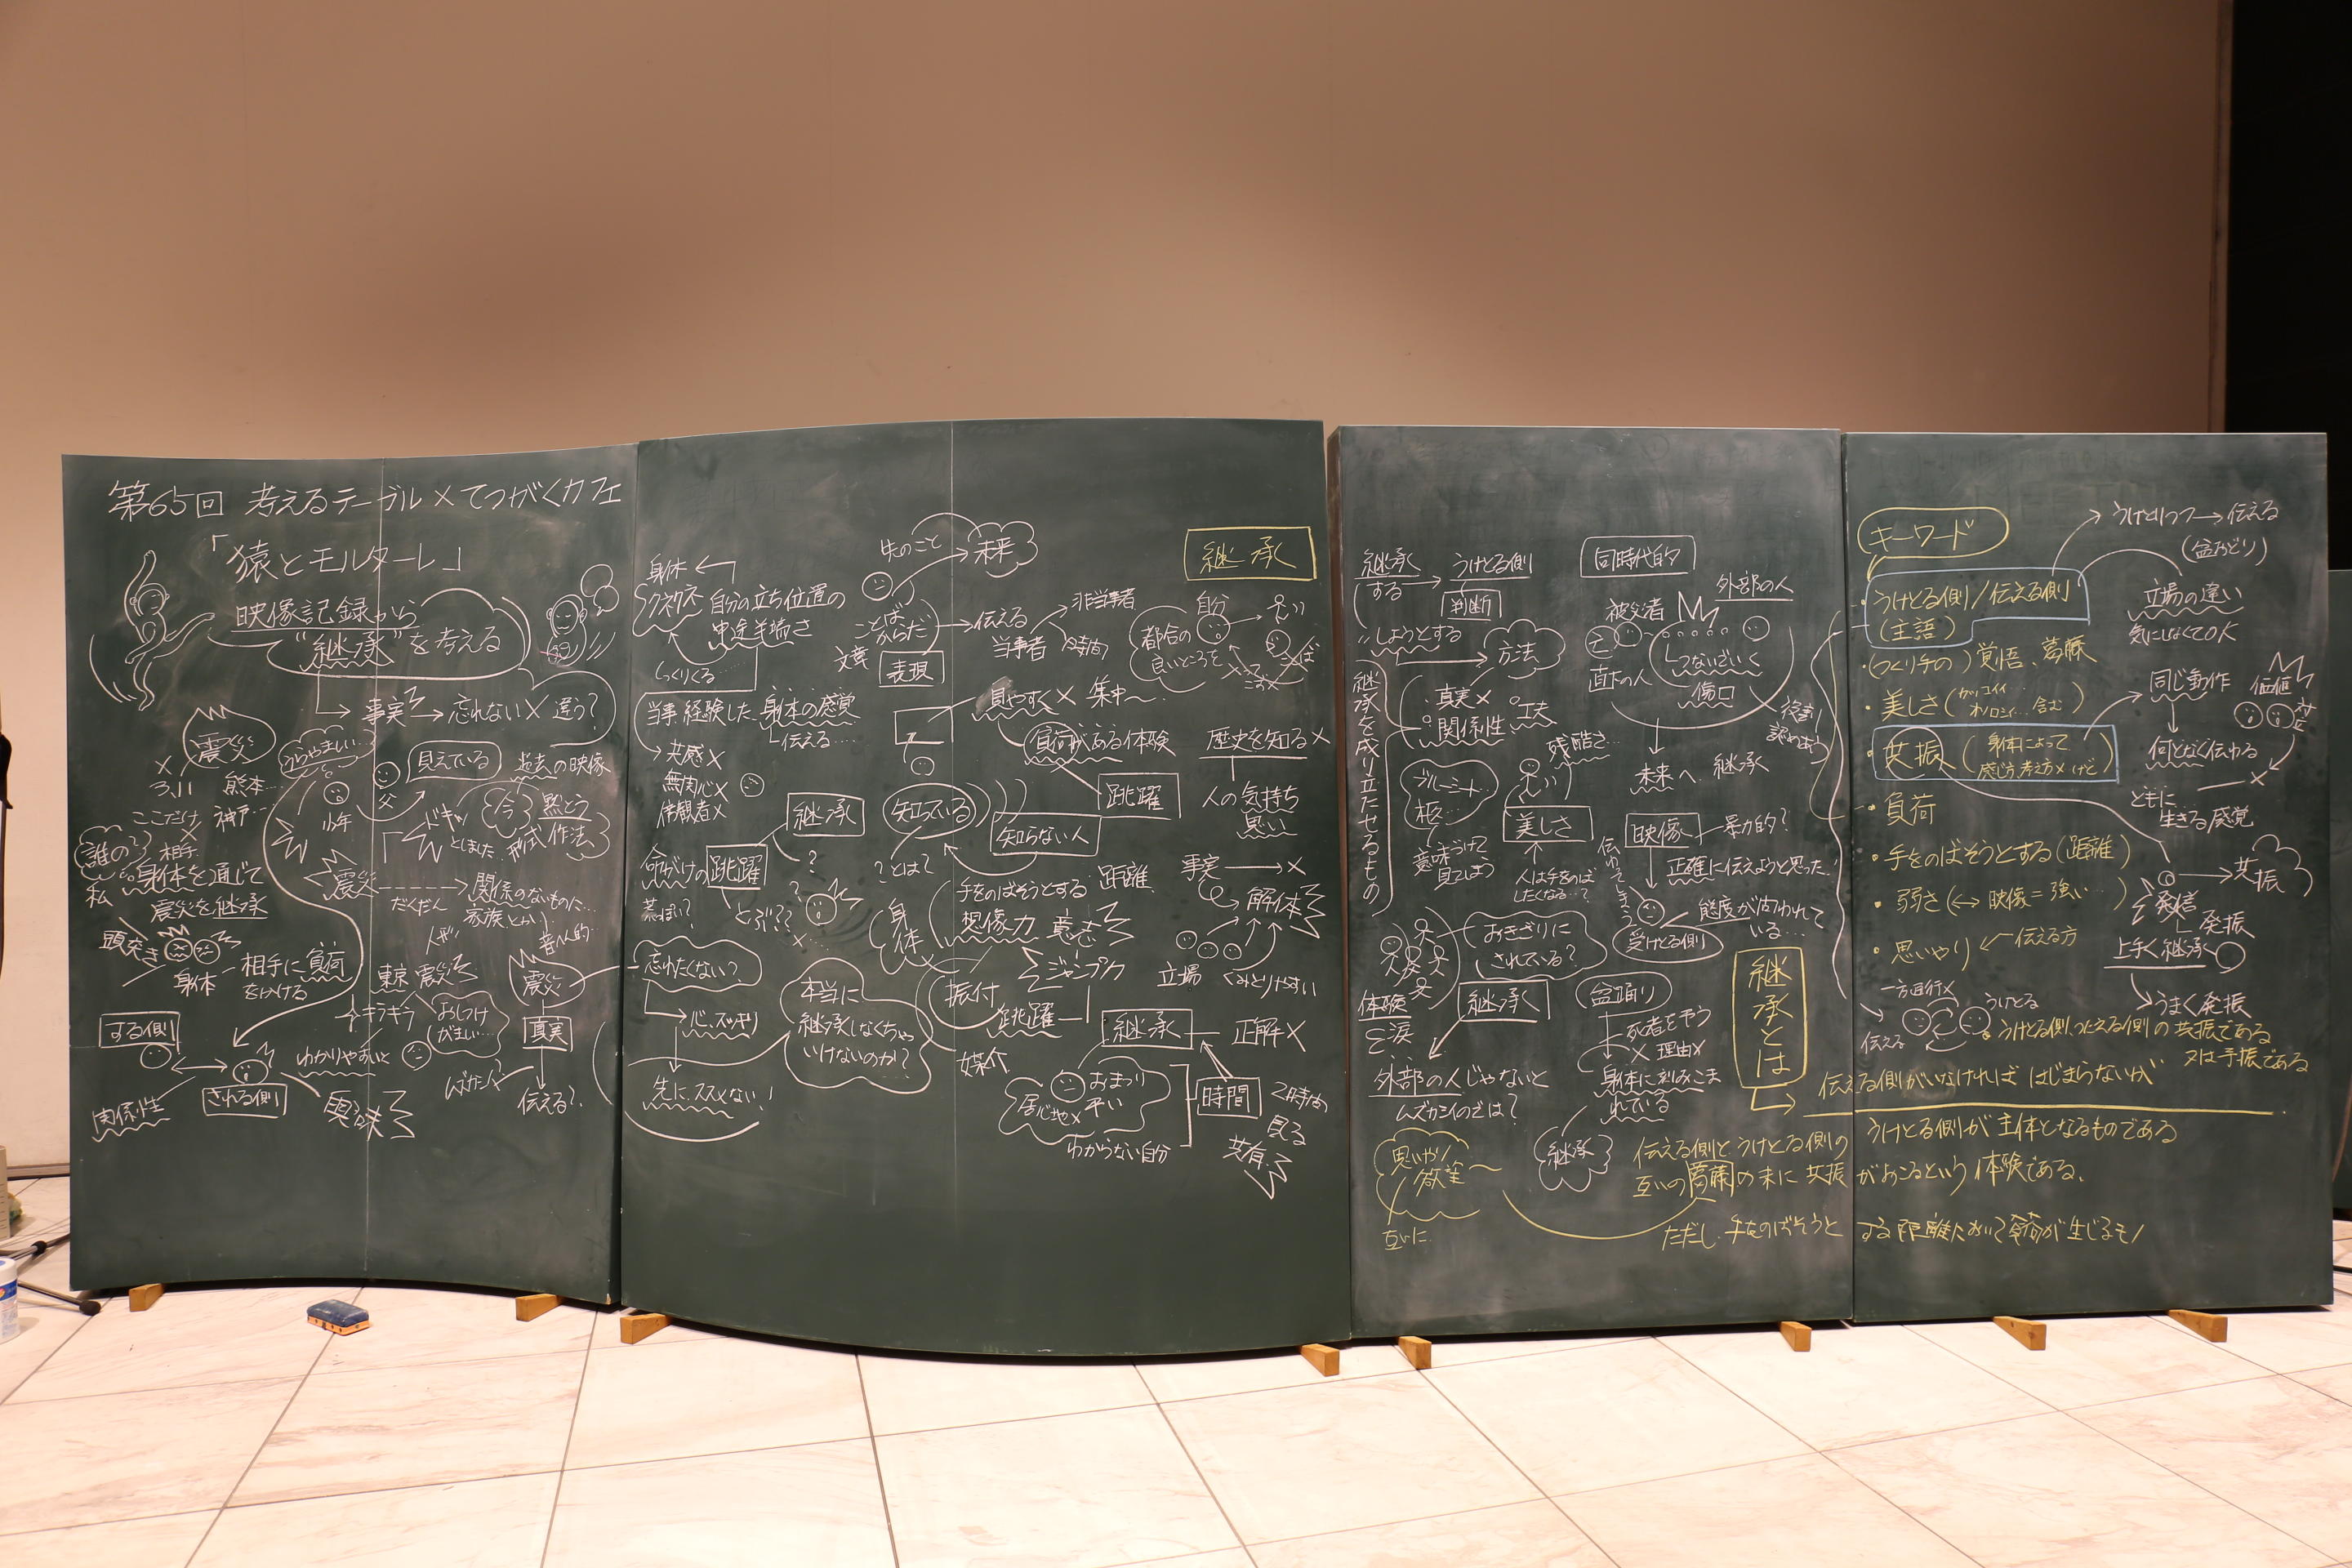 第65回 考えるテーブル×てつがくカフェ
「猿とモルターレ」
映像記録から
"継承"を考える
事実→忘れない×違う?
震災
×
3.11 熊本…
神戸…
ここだけ×
誰の? 相手
私 身体を通じて
震災を継承
頭突き
身体―相手に負荷
をかける
する側
される側
関係性
うらやましい…
少年
父
見えている
過去の映像
ドキッ
としました
今
黙とう
形式 作法
震災
だんだん
関係のないものに…
家族とか
昔の人的…
東京 震災
キラキラ
おしつけ
がましい…
わかりやすいと
震災
真実
伝える?
ムズカシイ
身体
クネクネ
自分の立ち位置の
中途半端さ
しっくりくる……
当事 経験した 身体の感覚
伝える…
共感×
無関心×
傍観者×
継承
?
命がけの 跳躍
とぶ??
忘れたくない?
心、スッキリ
先に、ススメない!
本当に
継承しなくちゃ
いけないのか?
先のこと
未来
ことば
からだ
文章
表現
伝える
当事者
非当事者
自分
都合の
良いところを
継承
見やすく× 集中〜
負荷がある体験
跳躍
知っている
知らない人
?とは?
手をのばそうとする 距離
想像力 意志
身体
振付
媒介
ジャンプ力
跳躍
歴史を知る×
人の気持ち
思い
事実→×
解体
立場
くみとりやすい
継承
正解×
時間
2時間
見る
共有
おまつり
居心地×
わからない自分
継承
する
うけとる側
判断
〃しようとする
方法
継承を成り立たせるもの
真実×
関係性
工夫
残酷さ…
美しさ
意味づけて
見てしまう
人は手をのば
したくなる…?
同時代的
被災者
外部の人
直下の人
つないでいく
傷口
役割
認めあう
未来へ、継承
映像―暴力的?
正確に伝えようと思った!
伝わってしまう
受けとる側
態度が問われて
いる…
おきざりに
されている?
体験
涙
継承
外部の人じゃないと
ムズカシイのでは?
盆踊り
死者を弔う
× 理由×
身体に刻みこま
れている
継承
思いやり
互いに
継承とは
伝える側がいなければ はじまらないが
うけとる側が主体となるものである
伝える側と うけとる側の
互いの葛藤の末に 共振 がおこるという体験である。
ただし、手をのばそうと する距離において葛藤が生じるも
キーワード
・うけとる側/伝える側
(主語)
・(つくり手の)覚悟、葛藤
・美しさ(カッコイイ…
オソロシイ…含む)
・共振(身体によって
感じ方、考え方×けど)
・負荷
・手をのばそうとする(距離)
・弱さ(↔映像=強い…)
・思いやり←伝える方
一方通行×
伝える
うけとる
うけとる側、つたえる側の共振である
又は手振である
うけとりつつ→伝える
(盆おどり)
立場の違い
気にしなくてOK
同じ動作
何となく伝わる
価値
ともに
生きる感覚
共振
発信
発振
上手く継承
うまく発振